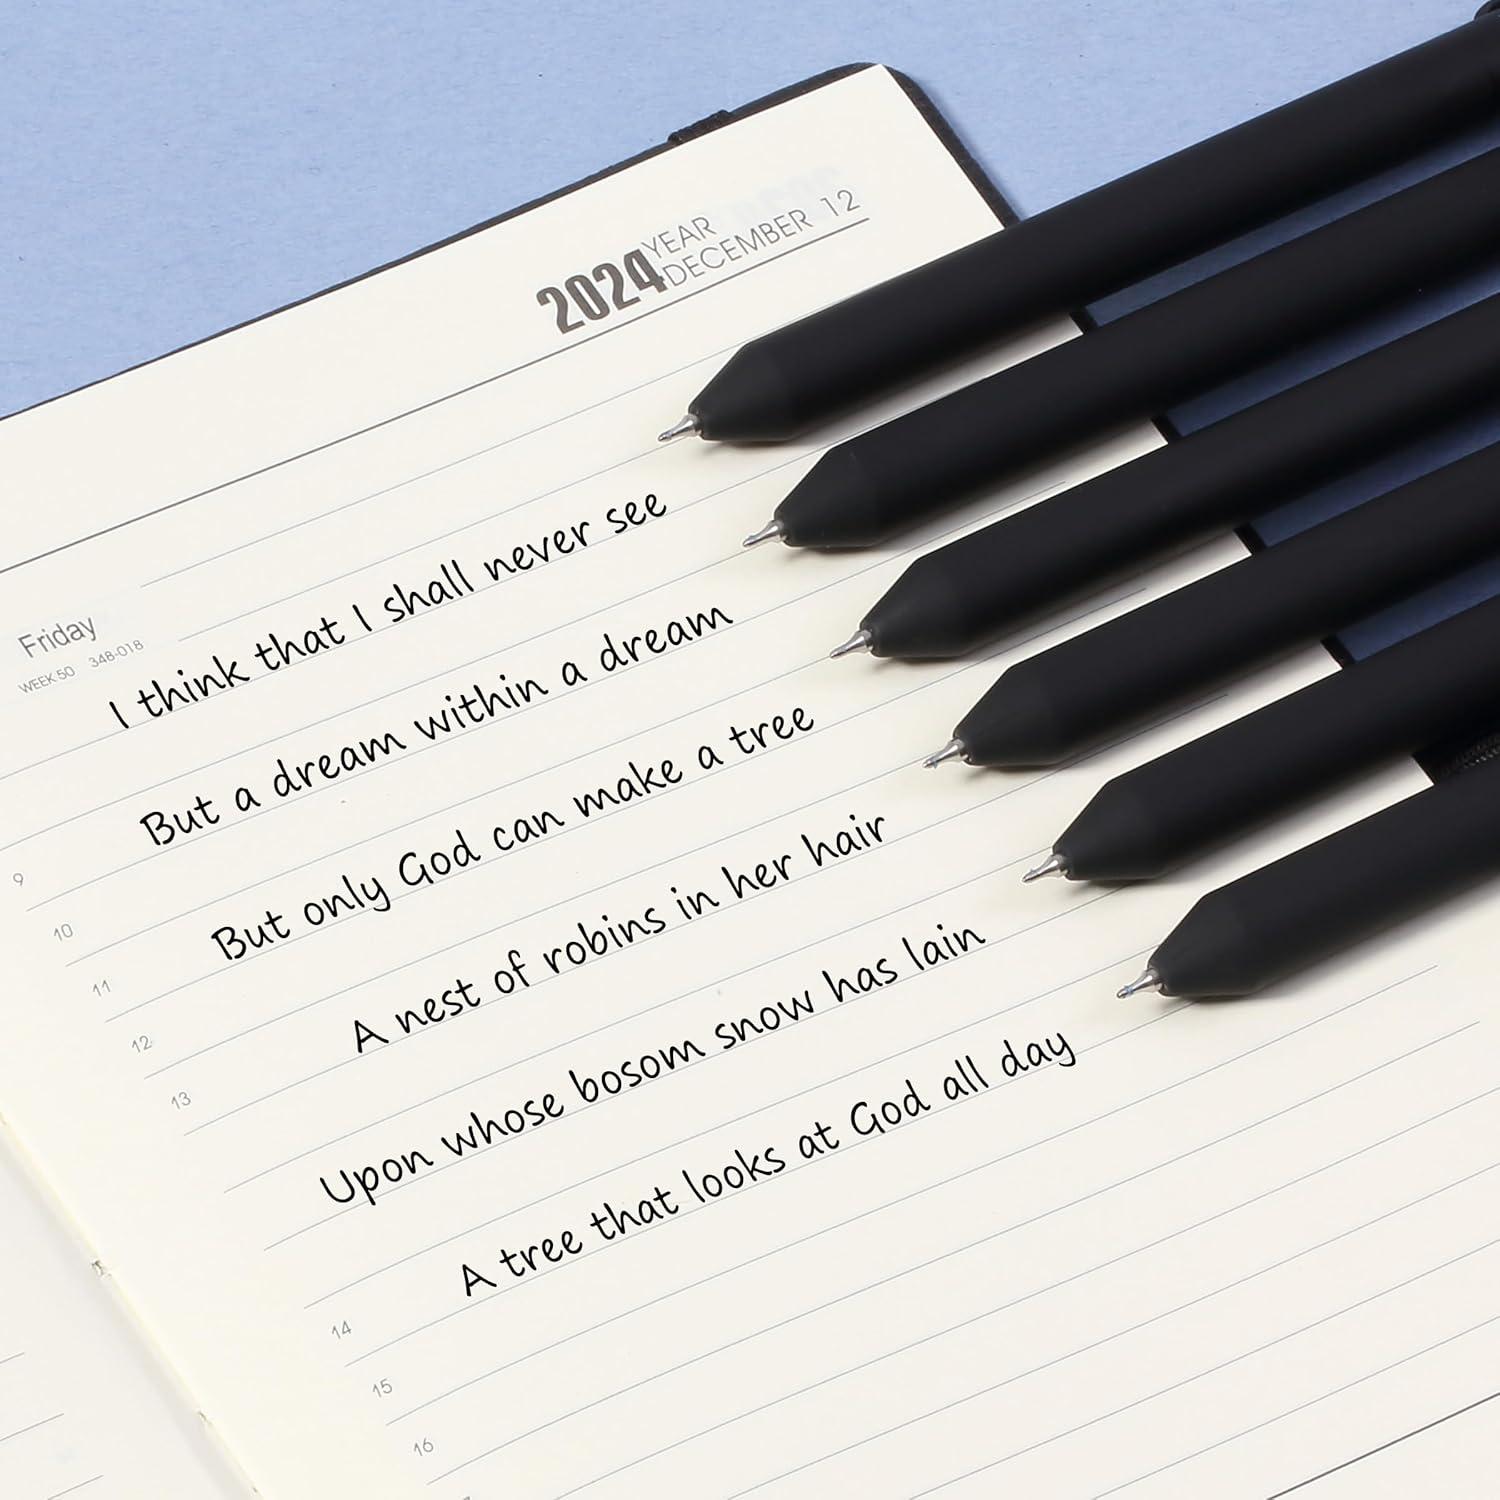 2024 YEAR
DECEMBER 12
Friday
WEEK 50 348-018
I think that I shall never see
But a dream within a dream
But only God can make a tree
A nest of robins in her hair
Upon whose bosom snow has lain
A tree that looks at God all day
9
10
11
12
13
14
15
16